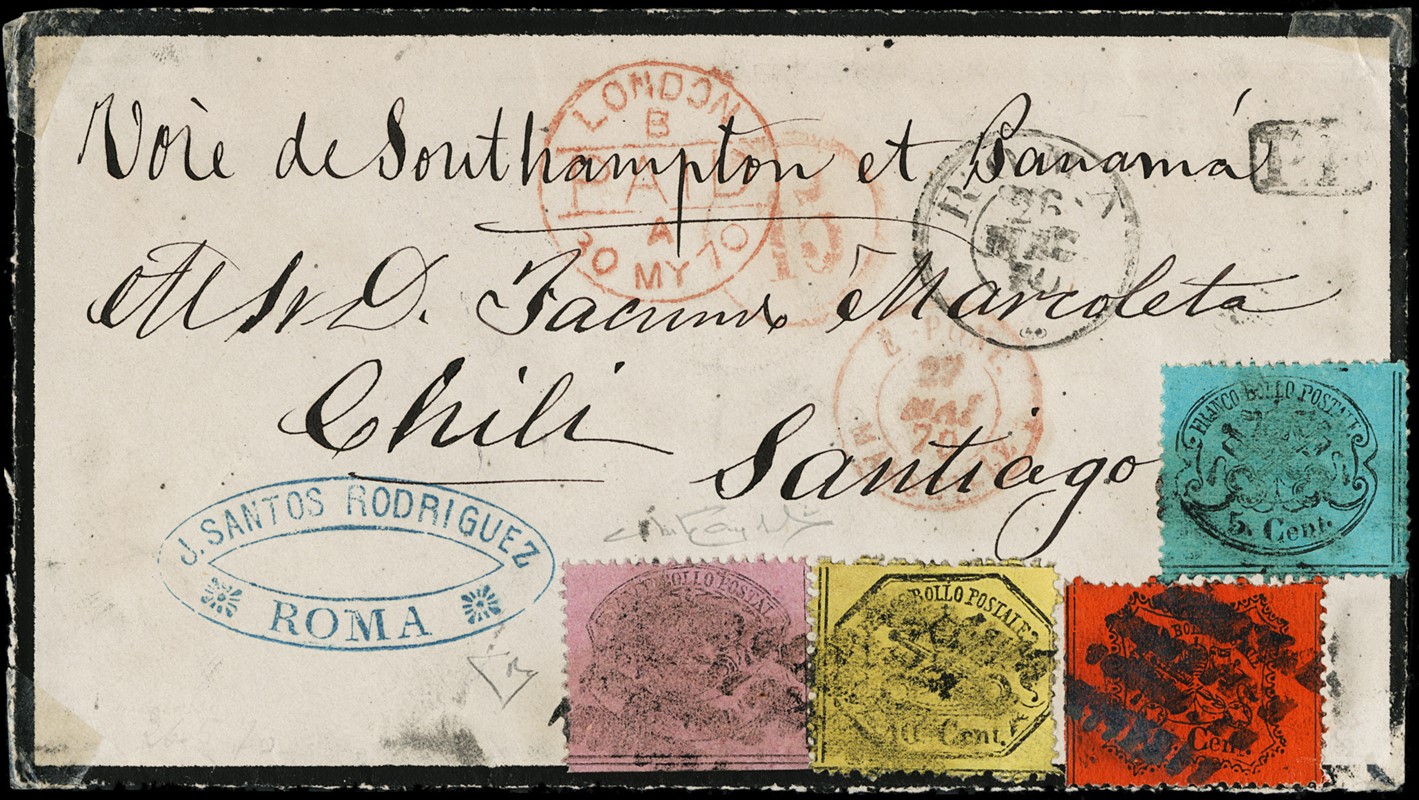 LONDON
B
PAID
A
30 MY 70
Voie de Southampton et Panamá
15
26
70
D. Facundo Marcoleta
27
MAI
70
Chili
Santiago
J. SANTOS RODRIGUEZ
ROMA
FRANCO BOLLO POSTALE
5. Cent.
BOLLO POSTALE
BOLLO POSTALE
10. Cent.
Cent.
26 5 70